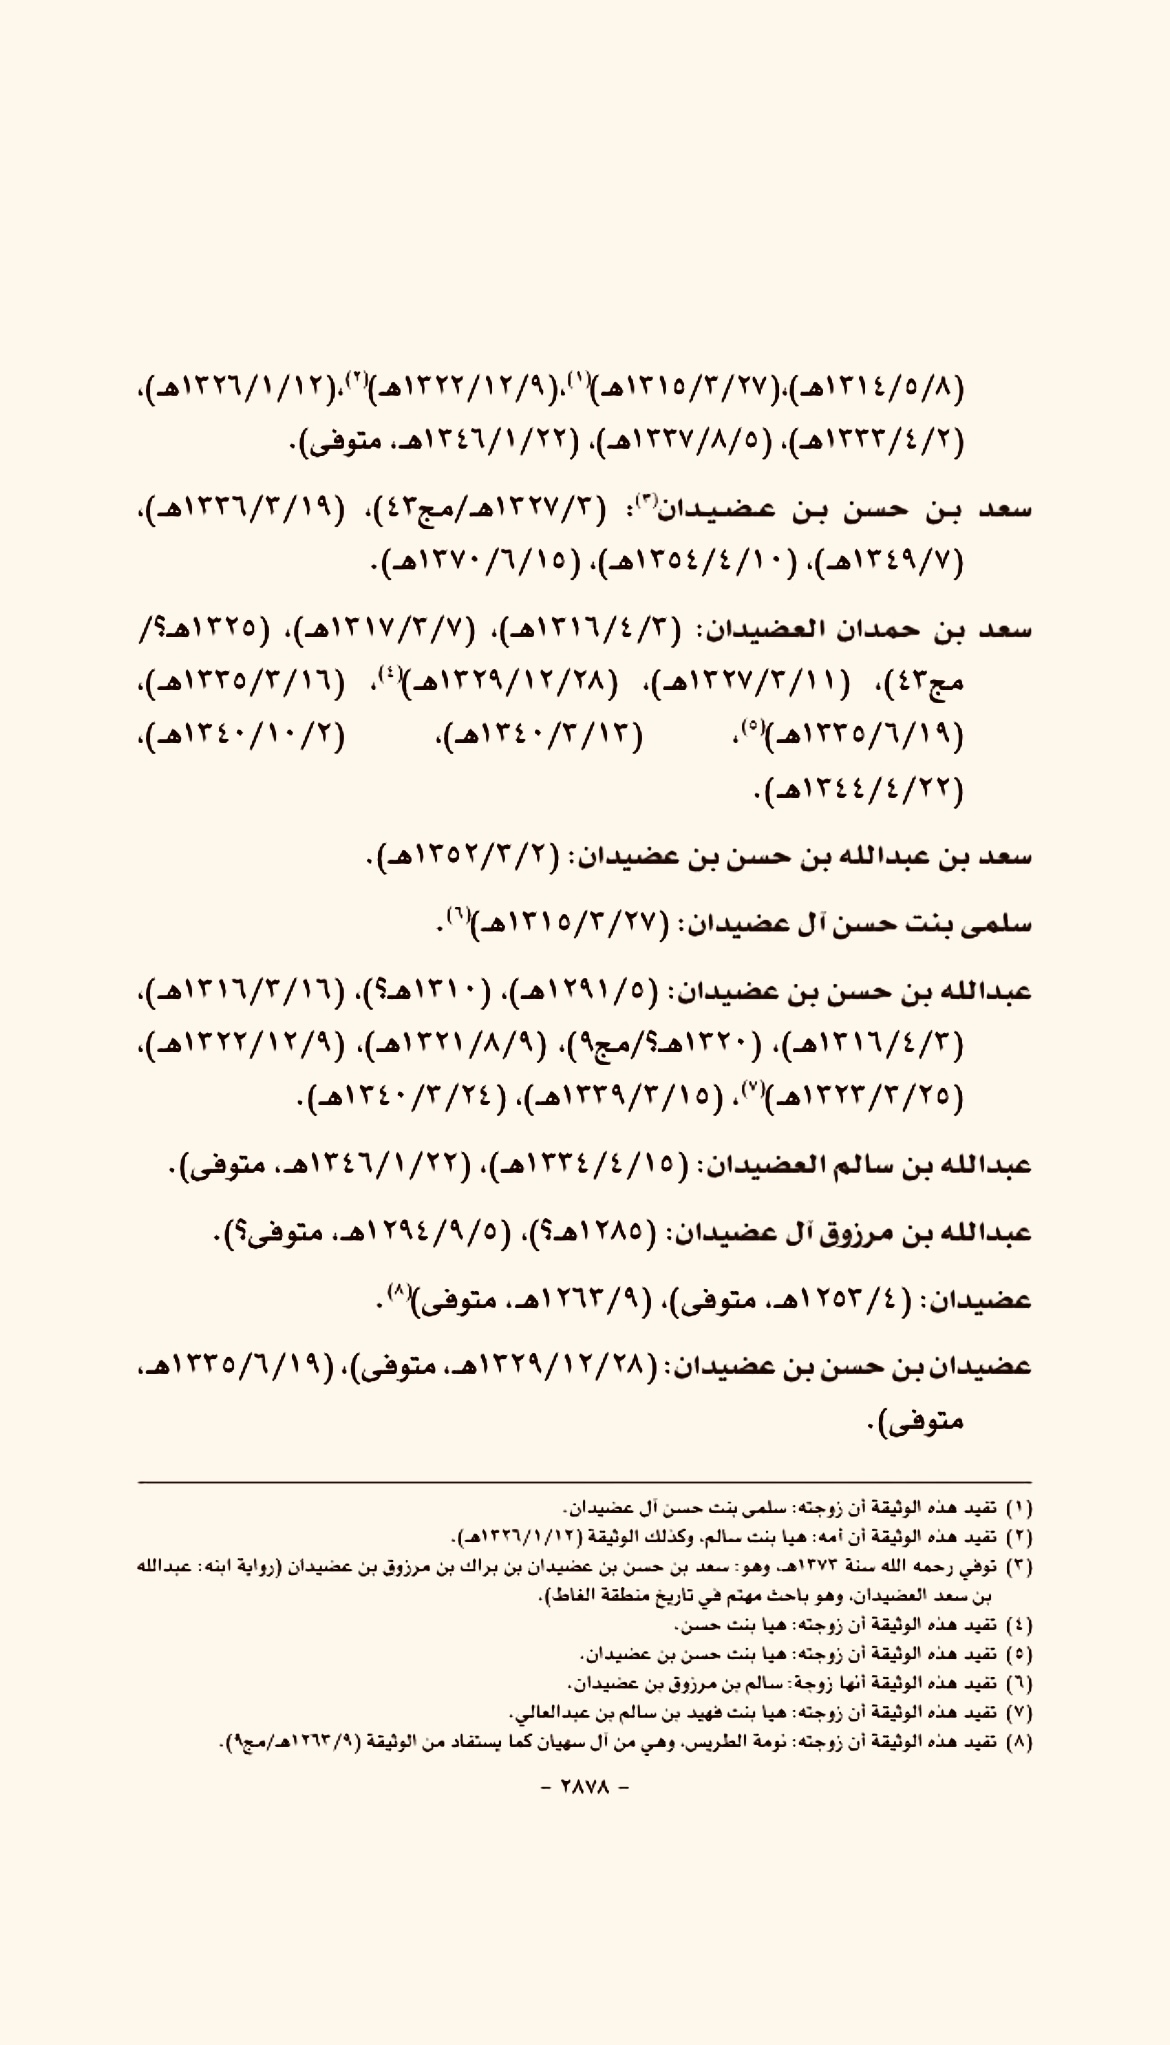 (١٣١٤/٥/٨هـ)،(١٣١٥/٣/٢٧هـ)(١)،(١٣٢٢/١٢/٩هـ)(٢)،(١٣٢٦/١/١٢هـ)،
(١٣٣٣/٤/٢هـ)، (١٣٣٧/٨/٥هـ)، (١٣٤٦/١/٢٢هـ، متوفى).
سعد بن حسن بن عضيدان(٣): (١٣٢٧/٣هـ/مج٤٣)، (١٣٣٦/٣/١٩هـ)،
(١٣٤٩/٧هـ)، (١٣٥٤/٤/١٠هـ)، (١٣٧٠/٦/١٥هـ).
سعد بن حمدان العضيدان: (١٣١٦/٤/٣هـ)، (١٣١٧/٣/٧هـ)، (١٣٢٥هـ؟/
مج٤٣)، (١٣٢٧/٣/١١هـ)، (١٣٢٩/١٢/٢٨هـ)(٤)، (١٣٣٥/٣/١٦هـ)،
(١٣٣٥/٦/١٩هـ)(٥)، (١٣٤٠/٣/١٣هـ)، (١٣٤٠/١٠/٢هـ)،
(١٣٤٤/٤/٢٢هـ).
سعد بن عبدالله بن حسن بن عضيدان: (١٣٥٢/٣/٢هـ).
سلمى بنت حسن آل عضيدان: (١٣١٥/٣/٢٧هـ)(٦).
عبدالله بن حسن بن عضيدان: (١٢٩١/٥هـ)، (١٣١٠هـ؟)، (١٣١٦/٣/١٦هـ)،
(١٣١٦/٤/٣هـ)، (١٣٢٠هـ؟/مج٩)، (١٣٢١/٨/٩هـ)، (١٣٢٢/١٢/٩هـ)،
(١٣٢٣/٣/٢٥هـ)(٧)، (١٣٣٩/٣/١٥هـ)، (١٣٤٠/٣/٢٤هـ).
عبدالله بن سالم العضيدان: (١٣٣٤/٤/١٥هـ)، (١٣٤٦/١/٢٢هـ، متوفى).
عبدالله بن مرزوق آل عضيدان: (١٢٨٥هـ؟)، (١٢٩٤/٩/٥هـ، متوفى؟).
عضيدان: (١٢٥٣/٤هـ، متوفى)، (١٢٦٣/٩هـ، متوفى)(٨).
عضيدان بن حسن بن عضيدان: (١٣٢٩/١٢/٢٨هـ، متوفى)، (١٣٣٥/٦/١٩هـ،
متوفى).
(١) تفيد هذه الوثيقة أن زوجته: سلمى بنت حسن آل عضيدان.
(٢) تفيد هذه الوثيقة أن أمه: هيا بنت سالم، وكذلك الوثيقة (١٣٢٦/١/١٢هـ).
(٣) توفي رحمه الله سنة ١٣٧٣هـ، وهو: سعد بن حسن بن عضيدان بن براك بن مرزوق بن عضيدان (رواية ابنه: عبدالله
بن سعد العضيدان، وهو باحث مهتم في تاريخ منطقة الغاط).
(٤) تفيد هذه الوثيقة أن زوجته: هيا بنت حسن.
(٥) تفيد هذه الوثيقة أن زوجته: هيا بنت حسن بن عضيدان.
(٦) تفيد هذه الوثيقة أنها زوجة: سالم بن مرزوق بن عضيدان.
(٧) تفيد هذه الوثيقة أن زوجته: هيا بنت فهيد بن سالم بن عبدالعالي.
(٨) تفيد هذه الوثيقة أن زوجته: نومة الطريس، وهي من آل سهيان كما يستفاد من الوثيقة (١٢٦٣/٩هـ/مج٩).
- ٢٨٧٨ -